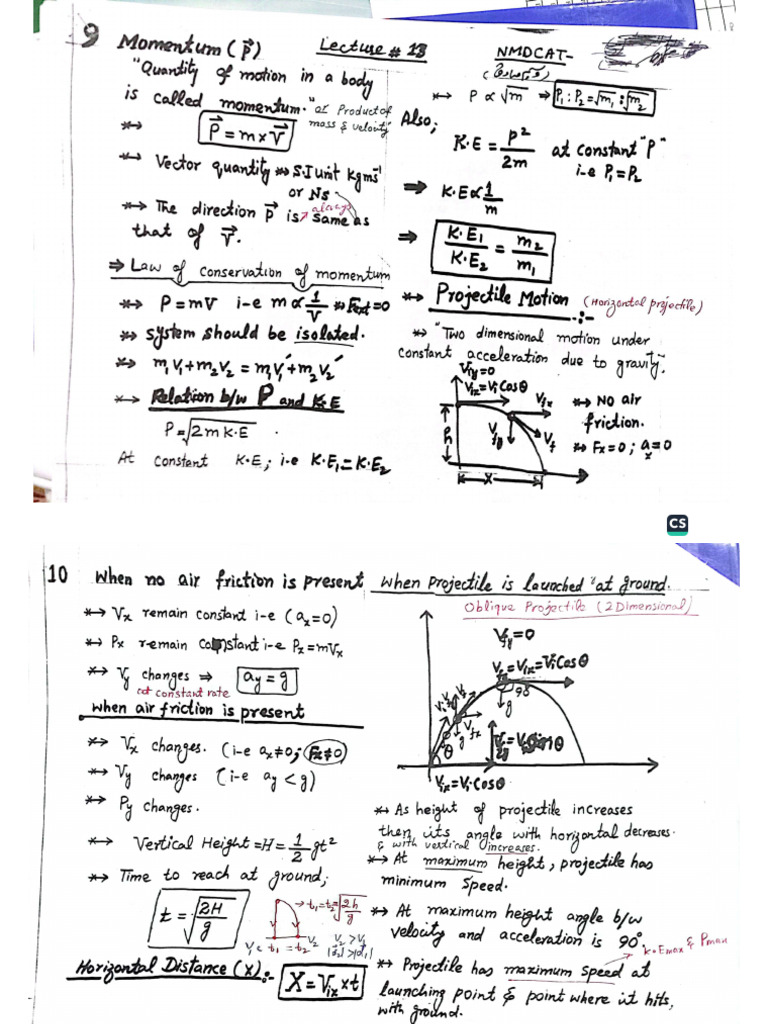 9 Momentum (P⃗) Lecture # 13
"Quantity of motion in a body
is called momentum. "or Product of
mass & velocity"
*→ P⃗ = m × V⃗
*→ Vector quantity *→ S.I unit kgms⁻¹
or Ns
*→ The direction P⃗ is always same as
that of V⃗.
⇒ Law of conservation of momentum
*→ P = mV i-e m ∝ 1/V *→ Fext = 0
*→ system should be isolated.
*→ m₁V₁ + m₂V₂ = m₁V₁′ + m₂V₂′
*→ Relation b/w P and K.E
P = √2mK.E .
At constant K.E; i.e K.E₁ = K.E₂
NMDCAT-
*→ P ∝ √m ⇒ P₁ : P₂ = √m₁ : √m₂
Also;
K.E = P²/2m at constant "P"
i-e P₁ = P₂
⇒ K.E ∝ 1/m
⇒ K.E₁/K.E₂ = m₂/m₁
*→ Projectile Motion (Horizontal projectile)
*→ "Two dimensional motion under
constant acceleration due to gravity".
Viy = 0
Vix = Vi Cosθ
Vfx
*→ No air
friction.
h
Vfy
Vf
*→ Fx = 0 ; ax = 0
X
CS
10 when no air friction is present
*→ Vx remain constant i-e (ax = 0)
*→ Px remain constant i-e Px = mVx
*→ Vy changes ⇒ ay = g
at constant rate
when air friction is present
*→ Vx changes. (i-e ax ≠ 0; Fx ≠ 0)
*→ Vy changes (i-e ay < g)
*→ Py changes.
*→ Vertical Height = H = 1/2 gt²
*→ Time to reach at ground;
t = √2H/g
→ t₁ = t₂ = √2h/g
V₁ < t₁ = t₂ V₂
V₂ > V₁
Horizontal Distance (X):- X = Vix × t
when projectile is launched "at ground.
Oblique Projectile (2 Dimensional)
Vfy = 0
Vf = Vix = Vi Cosθ
90
g
Vfx
g
θ
Vix = Vi Cosθ
*→ As height of projectile increases
then its angle with horizontal decreases.
& with vertical increases.
*→ At maximum height, projectile has
minimum speed.
*→ At maximum height angle b/w
velocity and acceleration is 90°.
K.Emax & Pmax
*→ Projectile has maximum speed at
launching point & point where it hits,
with ground.